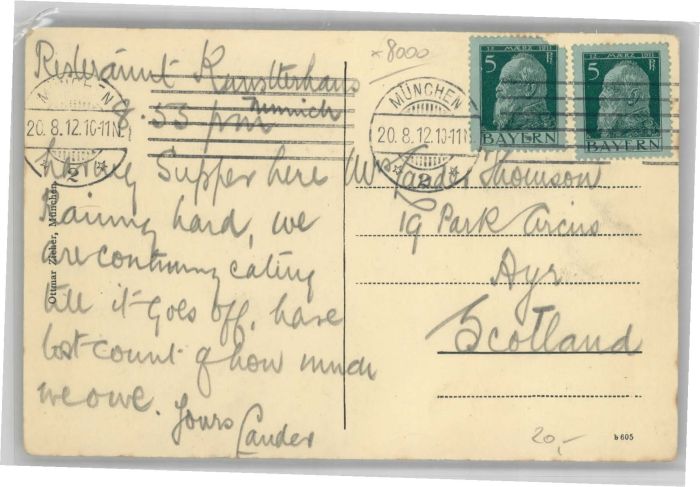 Restaurant Kunstlerhaus
Munich
8.55 pm
having Supper here
Raining hard, we
are continuing eating
till it goes off, have
lost count of how much
we owe. Yours
Lauder
×8000
MÜNCHEN
20.8.12.10-11N
2
MÜNCHEN
20.8.12.10-11N
2
12. MÄRZ 1911
5 Pf
BAYERN
12. MÄRZ 1911
5 Pf
BAYERN
Mrs Lauder Thomson
19 Park Circus
Ayr
Scotland
Ottmar Zieher, München
20,-
b 605